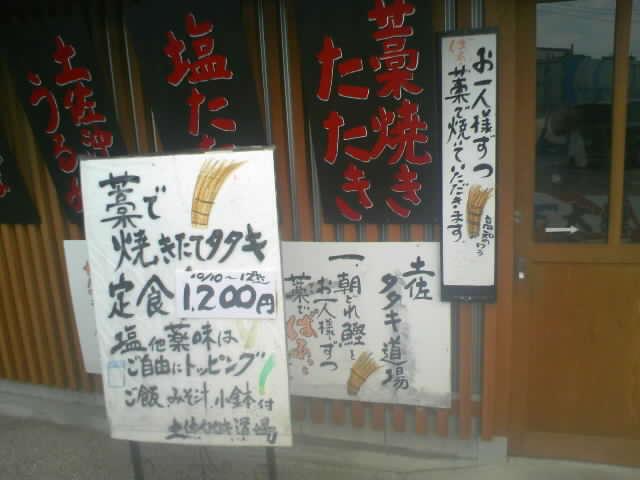 藁で
焼きたてタタキ
定食
1,200円
塩他薬味は
ご自由にトッピング
ご飯、みそ汁、小鉢付
土佐タタキ道場
土佐
うる
塩たた
藁焼き
たたき
お一人様ずつ
藁で焼いていただきます。
土佐
タタキ道場
一、朝どれ鰹を
お一人様ずつ
藁で